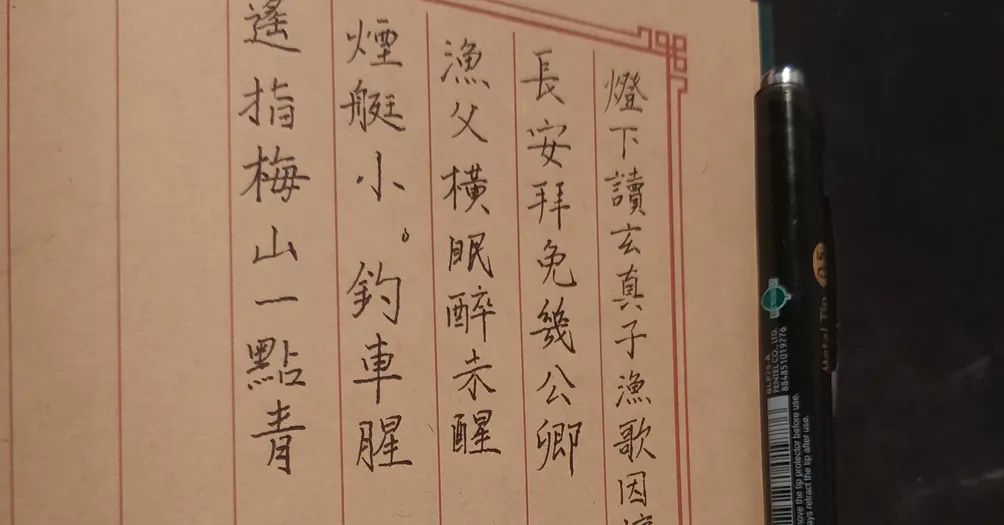 燈下讀玄真子漁歌因
長安拜免幾公卿
漁父橫眠醉未醒
煙艇小。釣車腥
遙指梅山一點青
0.5
Metal Tip
PENTEL CO., LTD.
884851019776
before use.
retract the tip after use.